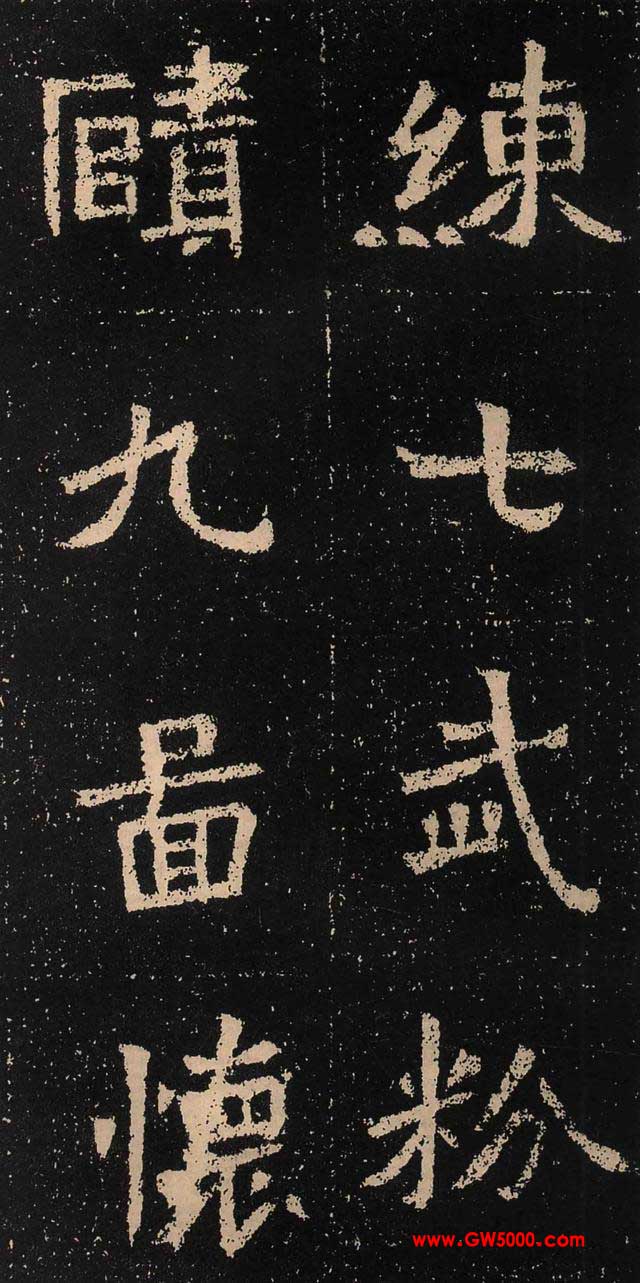 練七武粉
賾九啚懷
www.GW5000.com